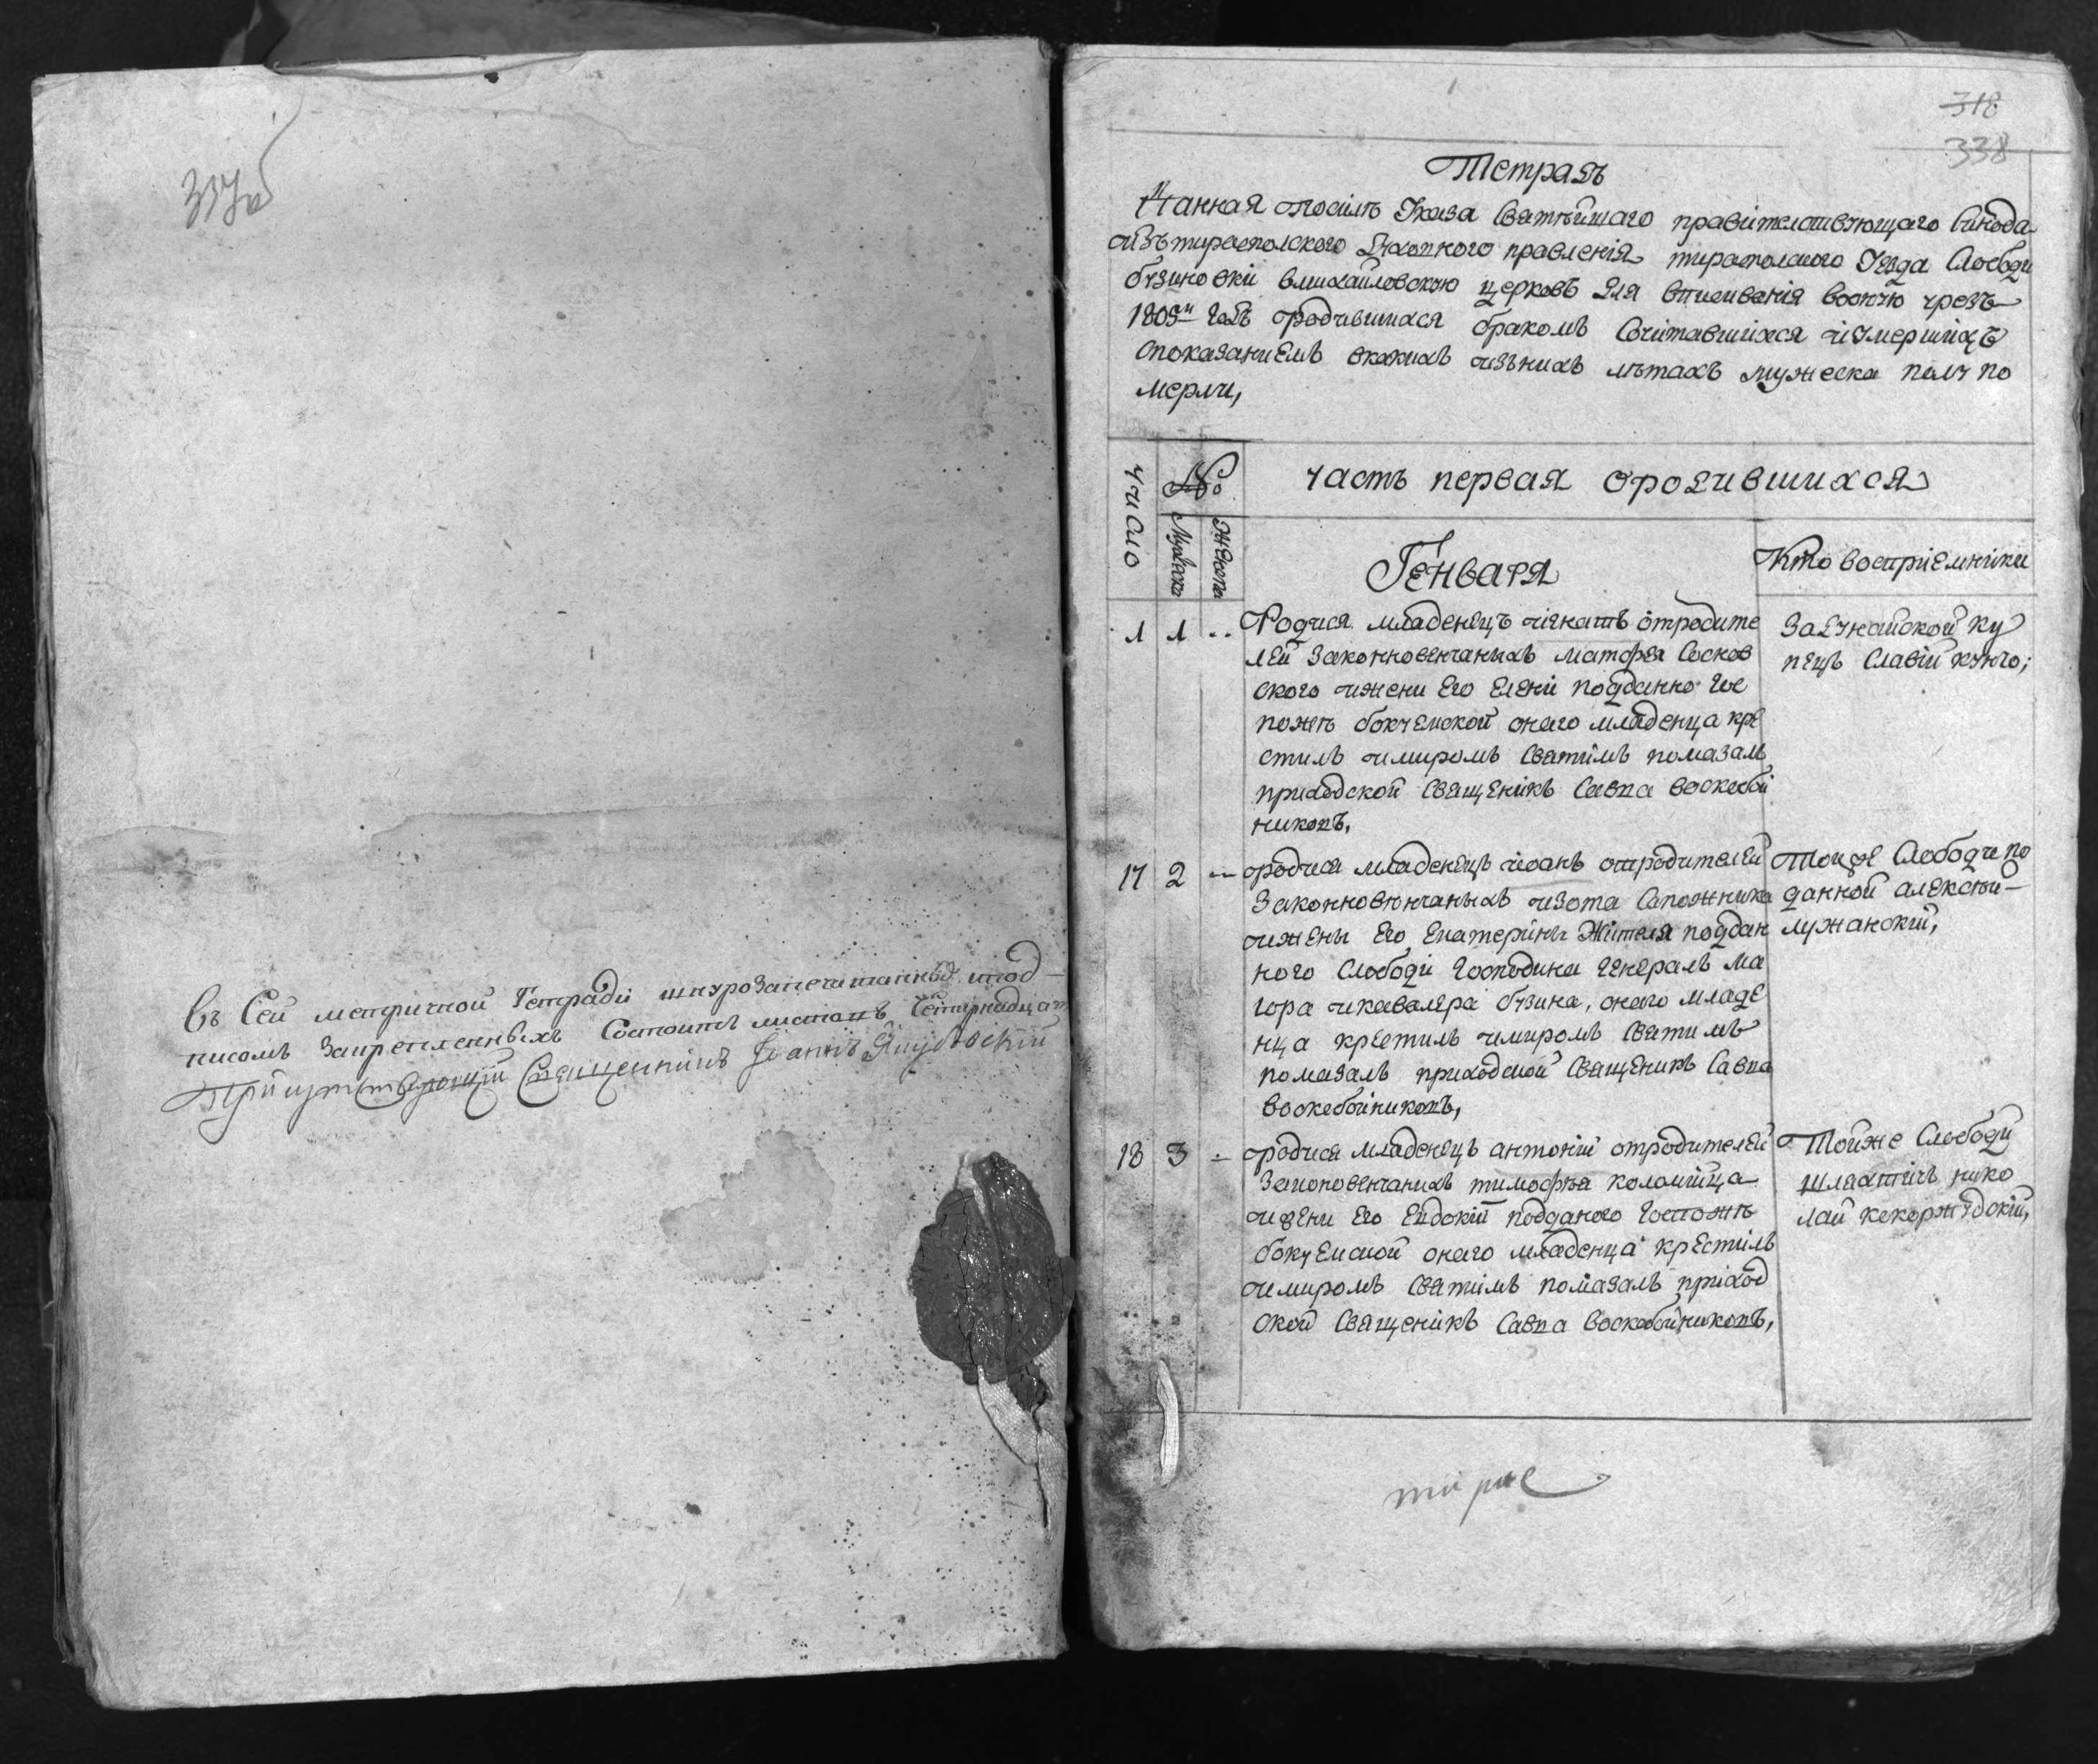 337об
Въ Сей метричной Тетради шнурозапечатанныхъ иѿод-
писомъ Закрепленныхъ Состоитъ листовъ Четирнадцат
Присутствующій Священникъ Іоаннъ
318
338
Тетрадь
Данная посилѣ Указа Святѣйшаго правителствующаго Синода
изътираспольского Духовного правленія тираспольского Уезда Слободи
бузиновки вмихайловскую церковъ для вписиванія воончю чрезъ
1805й Годъ родившихся бракомъ Сочитавшихся иумершихъ
споказаниемъ вкакихъ изънихъ лѣтахъ мужеска полу по
мерли,
число
№
часть первая ородившихся
Мужеска
Женска
Генваря
Кто восприемники
1 1 .. Родися младенецъ игнатъ отродите
лей законновенчаныхъ матфея Сосков
ского ижени Его Елени подданно гос
пожѣ бокчемской онаго младенца кре
стилъ имиромъ Святимъ помазалъ
приходской Священикъ Савва воскобой
никовъ,
Задунайской ку
пецъ Славій кунчо;
17 2 — родися младенецъ иоанъ отродителей
Законновѣнчаныхъ изота Сапожника
ижены Его Екатерины Жителя поддан
ного Слободи Господина Генералъ Ма
iора икавалера бузина, онаго младе
нца крестилъ имиромъ Святимъ
помазалъ приходской Священикъ Савва
воскобойниковъ,
Тоиже Слободи по
данной алексѣй
лужанский,
18 3 - родися младенецъ антоній отродителей
Законовенчанихъ тимофѣя коломийца
ижени Его Евдокіи подданого Госпожѣ
бокчемской онаго младенца крестилъ
имиромъ Святимъ помазалъ приход
ской Священикъ Савва воскобойниковъ,
Тойже Слободи
шляхтичъ нико
лай кекоржедский,